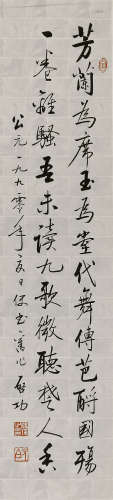 芳蘭為席玉為堂代舞傳芭酹國殤
一卷離騷吾未讀九歌微聽楚人香
公元一九九零年夏日書舊作啟功